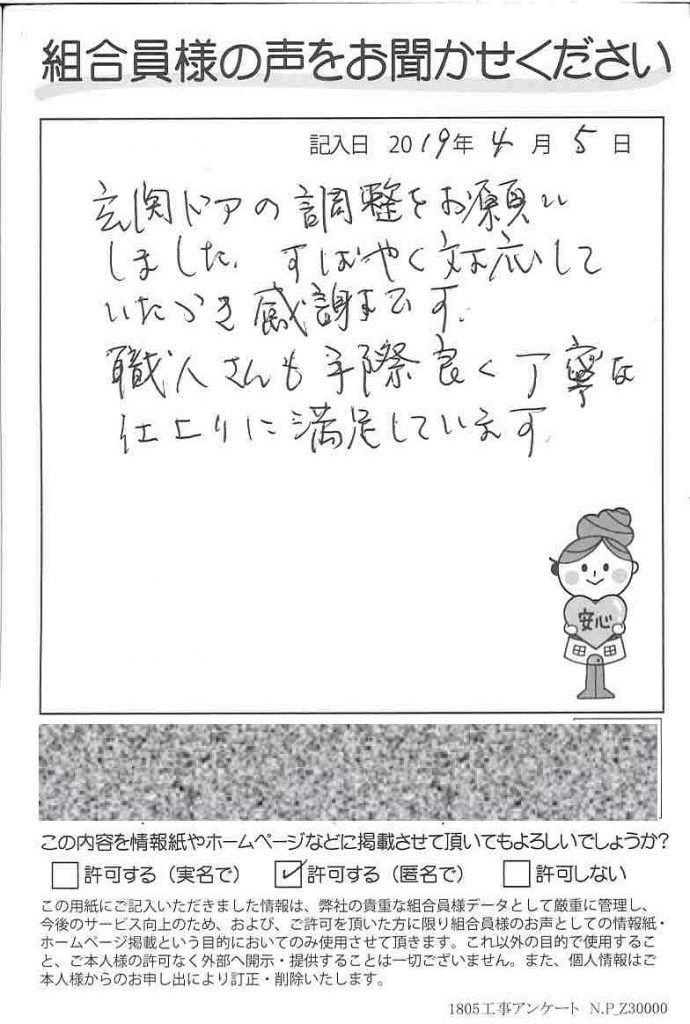 組合員様の声をお聞かせください
記入日 2019年 4月 5日
玄関ドアの調整をお願い
しました. すばやく対応して
いただき感謝です.
職人さんも手際良く丁寧な
仕上りに満足しています.
安心
この内容を情報紙やホームページなどに掲載させて頂いてもよろしいでしょうか?
許可する(実名で) 許可する(匿名で) 許可しない
この用紙にご記入いただきました情報は、弊社の貴重な組合員様データとして厳重に管理し、
今後のサービス向上のため、および、ご許可を頂いた方に限り組合員様のお声としての情報紙・
ホームページ掲載という目的においてのみ使用させて頂きます。これ以外の目的で使用するこ
と、ご本人様の許可なく外部へ開示・提供することは一切ございません。また、個人情報はご
本人様からのお申し出により訂正・削除いたします。
1805工事アンケート N.P_Z30000